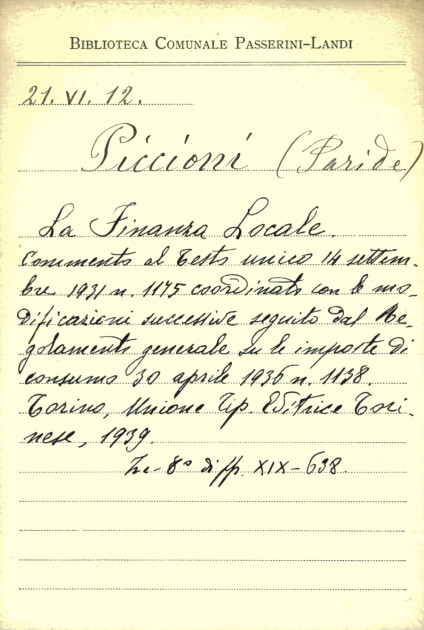 BIBLIOTECA COMUNALE PASSERINI-LANDI
21. VI. 12.
Piccioni (Paride)
La Finanza Locale.
Commento al Testo unico 14 settem-
bre 1931 n. 1175 coordinato con le mo-
dificazioni successive seguito dal Re-
golamento generale su le imposte di
consumo 30 aprile 1936 n. 1138.
Torino, Unione Tip. Editrice Tori-
nese, 1939.
In-8° di pp. XIX-638.